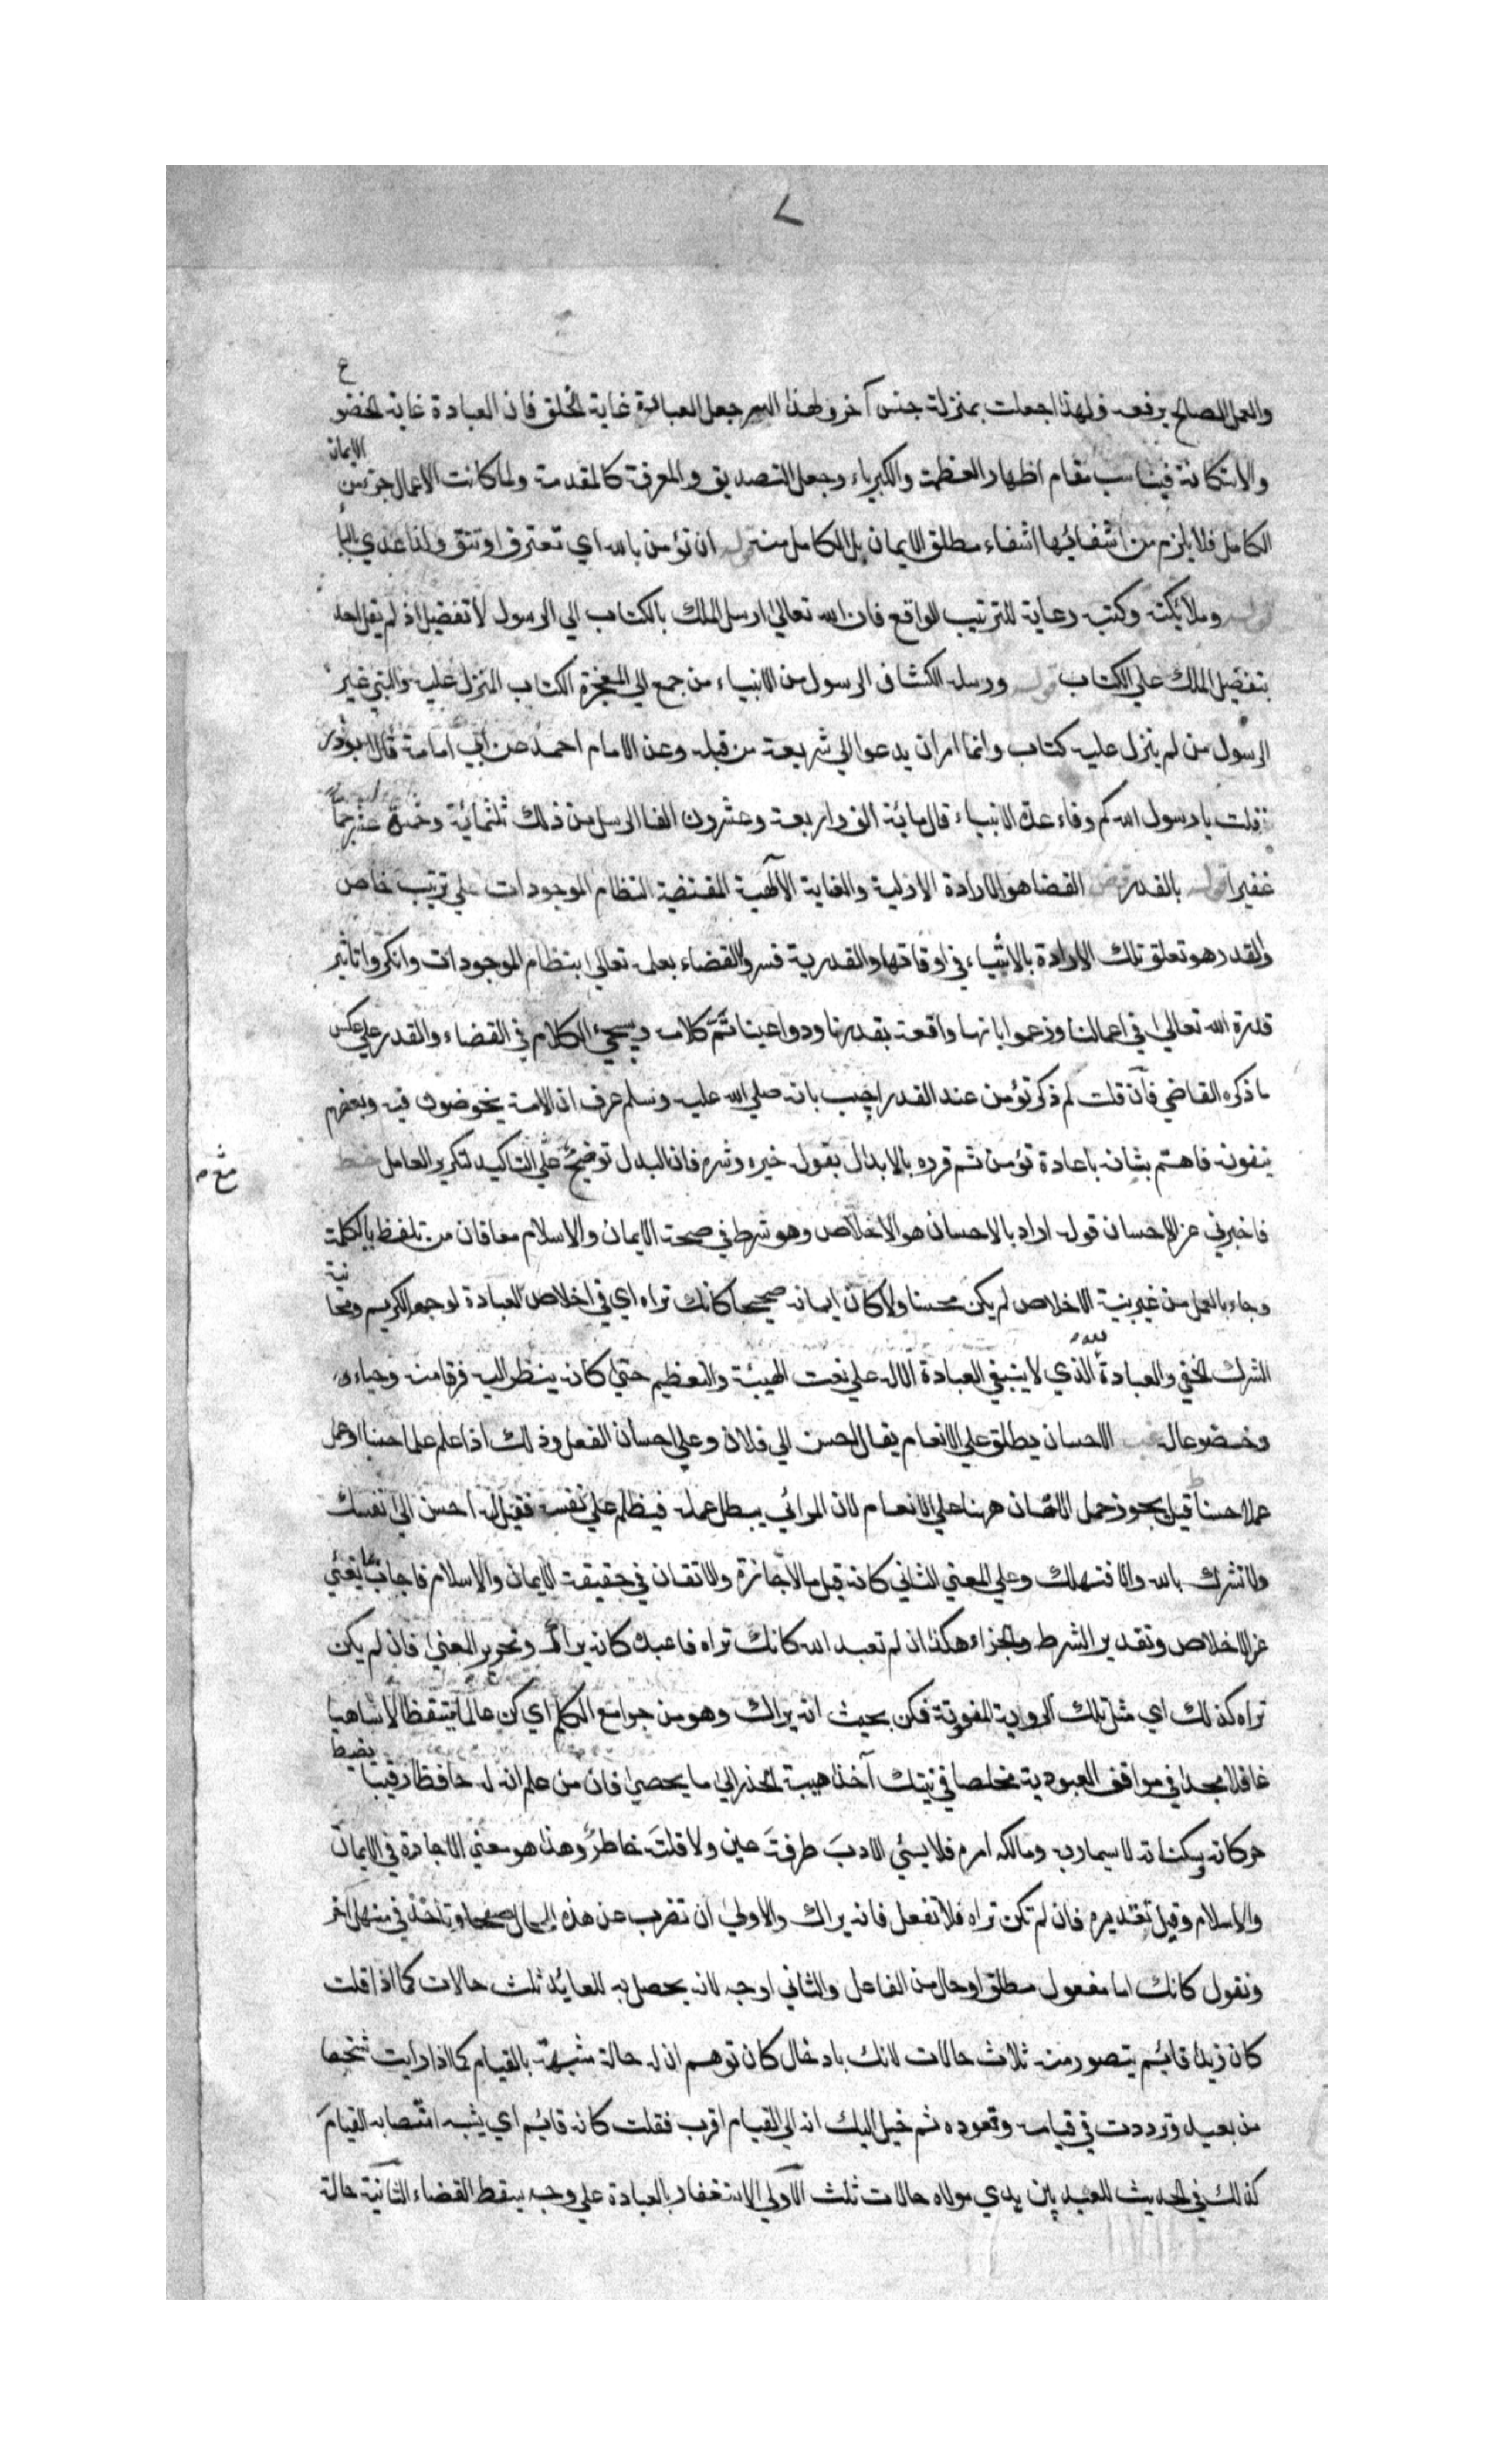 ٧
والعمل الصالح يرفعه ولهذا جعلت بمنزلة جنس آخر ولهذا السر جعل العبادة غاية الخلق فان العبادة غاية الخضوع
والاستكانة فيناسب مقام اظهار العظمة والكبرياء وجعل التصديق والمعرفة كالمقدمة ولما كانت الاعمال جزء من الايمان
الكامل فلا يلزم من انتفائها انتفاء مطلق الايمان بل الكامل منه قوله ان تؤمن بالله اي تعترف او تثق ولذا عدي بالبا
قوله وملائكته وكتبه رعاية للترتيب الواقع فان الله تعالى ارسل الملك بالكتاب الي الرسول لا تفضيل اذ لم يقل احد
بتفضيل الملك علي الكتاب قوله ورسله الكشاف الرسول من الانبياء من جمع الي المعجزة الكتاب المنزل عليه والنبي غير
الرسول من لم ينزل عليه كتاب وانما امر ان يدعو الي شريعة من قبله وعن الامام احمد عن ابي امامة قال ابوذر
قلت يا رسول الله كم وفاء عدة الانبياء قال مائة الف واربعة وعشرون الفا الرسل من ذلك ثلثمائة وخمسة عشر جما
غفيرا قوله بالقدر القضا هو الارادة الازلية والعناية الآلهية المقتضية لنظام الموجودات علي ترتيب خاص
والقدر هو تعلق تلك الارادة بالاشياء في اوقاتها والقدرية فسروا القضاء بعلمه تعالي بنظام الموجودات وانكروا تاثير
قدرة الله تعالي في اعمالنا وزعموا بانها واقعة بقدرنا ودواعينا تم كلامه ويجيء الكلام في القضاء والقدر علي عكس
ما ذكره القاضي فان قلت لم ذكر تؤمن عند القدر اجيب بانه صلي الله عليه وسلم عرف ان الامة يخوضون فيه وبعضهم
ينفونه فاهتم بشانه باعادة تؤمن ثم قرره بالابدال بقوله خيره وشره فان البدل توضيح علي التاكيد لتكرير العامل
فاخبرني عن الاحسان قوله اراد بالاحسان هو الاخلاص وهو شرط في صحة الايمان والاسلام معا فان من تلفظ بالكلمة
وجاء بالعمل من غير نية الاخلاص لم يكن محسنا ولا كان ايمانه صحيحا كانك تراه اي في اخلاص العبادة لوجهه الكريم ومجانبة
الشرك الخفي والعبادة لله الذي لا ينبغي العبادة الا له علي نعت الهيبة والتعظيم حتي كانه ينظر اليه فرقا منه وحياء
وخضوعا له الاحسان يطلق علي الانعام يقال احسن الي فلان وعلي احسان الفعل وذلك اذا علم علما حسنا او عمل
عملا حسنا قيل يجوز حمل الاحسان ههنا علي الانعام لان المرائي يبطل عمله فيظلم علي نفسه فقيل له احسن الي نفسك
ولا تشرك بالله والا فتهلك وعلي المعني الثاني كانه قيل ما الاجازة والاتقان في حقيقة الايمان والاسلام فاجاب بما ينبئ
عن الاخلاص وتقدير الشرط والجزاء هكذا ان لم تعبد الله كانك تراه فاعبده كانه يراك وتحرير المعني فان لم يكن
تراه كذلك اي مثل تلك الروية المفوتة فكن بحيث انه يراك وهو من جوامع الكلم اي كن عالما متيقظا لا ساهيا
غافلا مجدا في مواقف العبودية مخلصا في نيتك آخذا هيبة الحذر الي ما يحصي فان من علم ان له حافظا رقيبا يضبط
حركاته وسكناته لا سيما ربه ومالكه امره فلا يسئ الادب طرفة عين ولا فلتة خاطر وهذا هو معني الاجادة في الايمان
والاسلام وقيل تقديره فان لم تكن تراه فلا تفعل فانه يراك والاولي ان تضرب عن هذه وتاخذ في منهل آخر
ونقول كانك اما مفعول مطلق او حال من الفاعل والثاني اوجه لانه يحصل به للعابد ثلث حالات كما اذا قلت
كان زيدا قائم يتصور منه ثلاث حالات لانك بادخال كان توهم ان له حالة مشبهة بالقيام كما اذا رايت شخصا
من بعيد وترددت في قيامه وقعوده ثم خيل اليك انه الي القيام اقرب فقلت كانه قائم اي يشبه انتصابه القيام
كذلك في الحديث للعبد بين يدي مولاه حالات ثلث الاولي الاشتغال بالعبادة علي وجه يسقط القضاء الثانية حالة